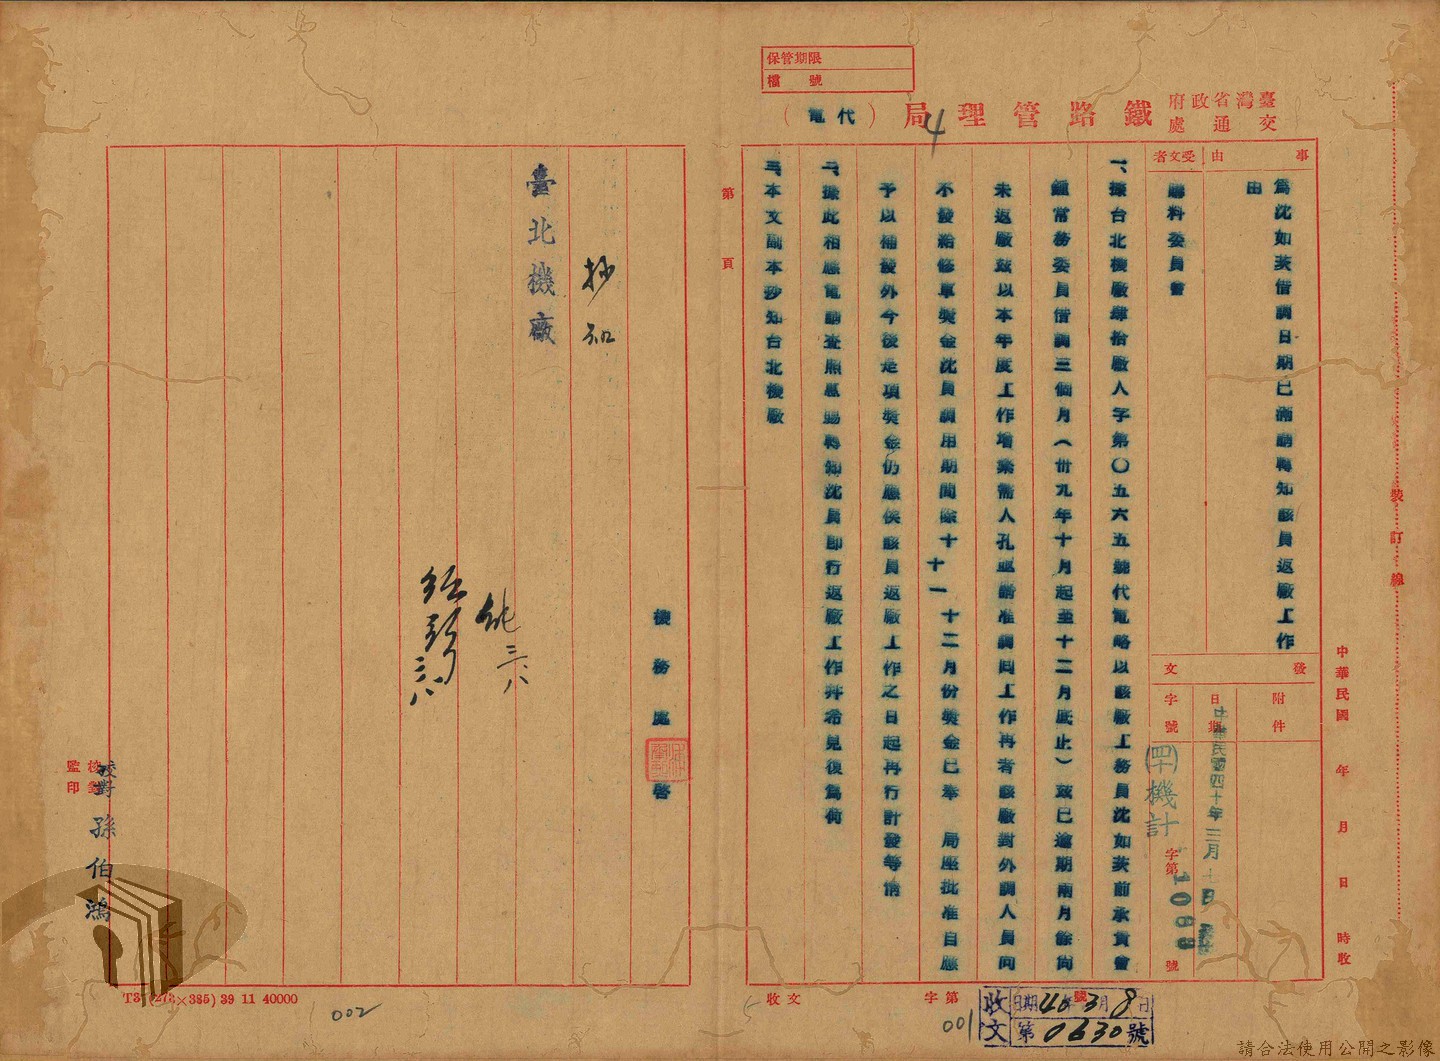 保管期限
檔 號
臺灣省政府交通處 鐵路管理局（代電）
4
事由
為沈如英借調日期已滿請轉知該員返廠工作
由
受文者
購料委員會
發文
附件
日期 中華民國四十年三月 日
字號 (四十)機計字第1088號
一、據台北機廠肆拾廠人字第〇五六五號代電略以該廠工務員沈如英前承貴會
鍾常務委員借調三個月(卅九年十月起至十二月底止)茲已逾期兩月餘尚
未返廠茲以本年度工作增繁需人孔亟請准調回工作再者該廠對外調人員向
不發給修車獎金沈員調用期間除十 十一 十二月份獎金已奉 局座批准自應
予以補發外今後是項獎金仍應俟該員返廠工作之日起再行計發等情
二、據此相應電請查照惠賜轉知沈員即行返廠工作幷希見復為荷
三、本文副本抄知台北機廠
第 頁
機務處 啓
抄知
臺北機廠
純 三、八
三、八
校對 監印
校對 孫伯鴻
裝訂線
中華民國 年 月 日 時收
收文 字第 號
收文 日期40年3月8日
第0630號
001
002
T37(273×385) 39 11 40000
請合法使用公開之影像